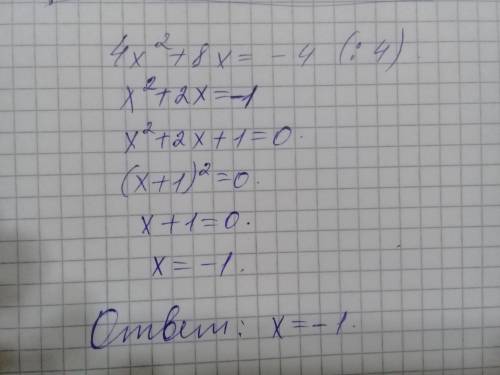 4x² + 8x = - 4 (: 4).
x² + 2x = -1
x² + 2x + 1 = 0.
(x+1)² = 0.
x + 1 = 0.
x = -1.
Ответ: x = -1.